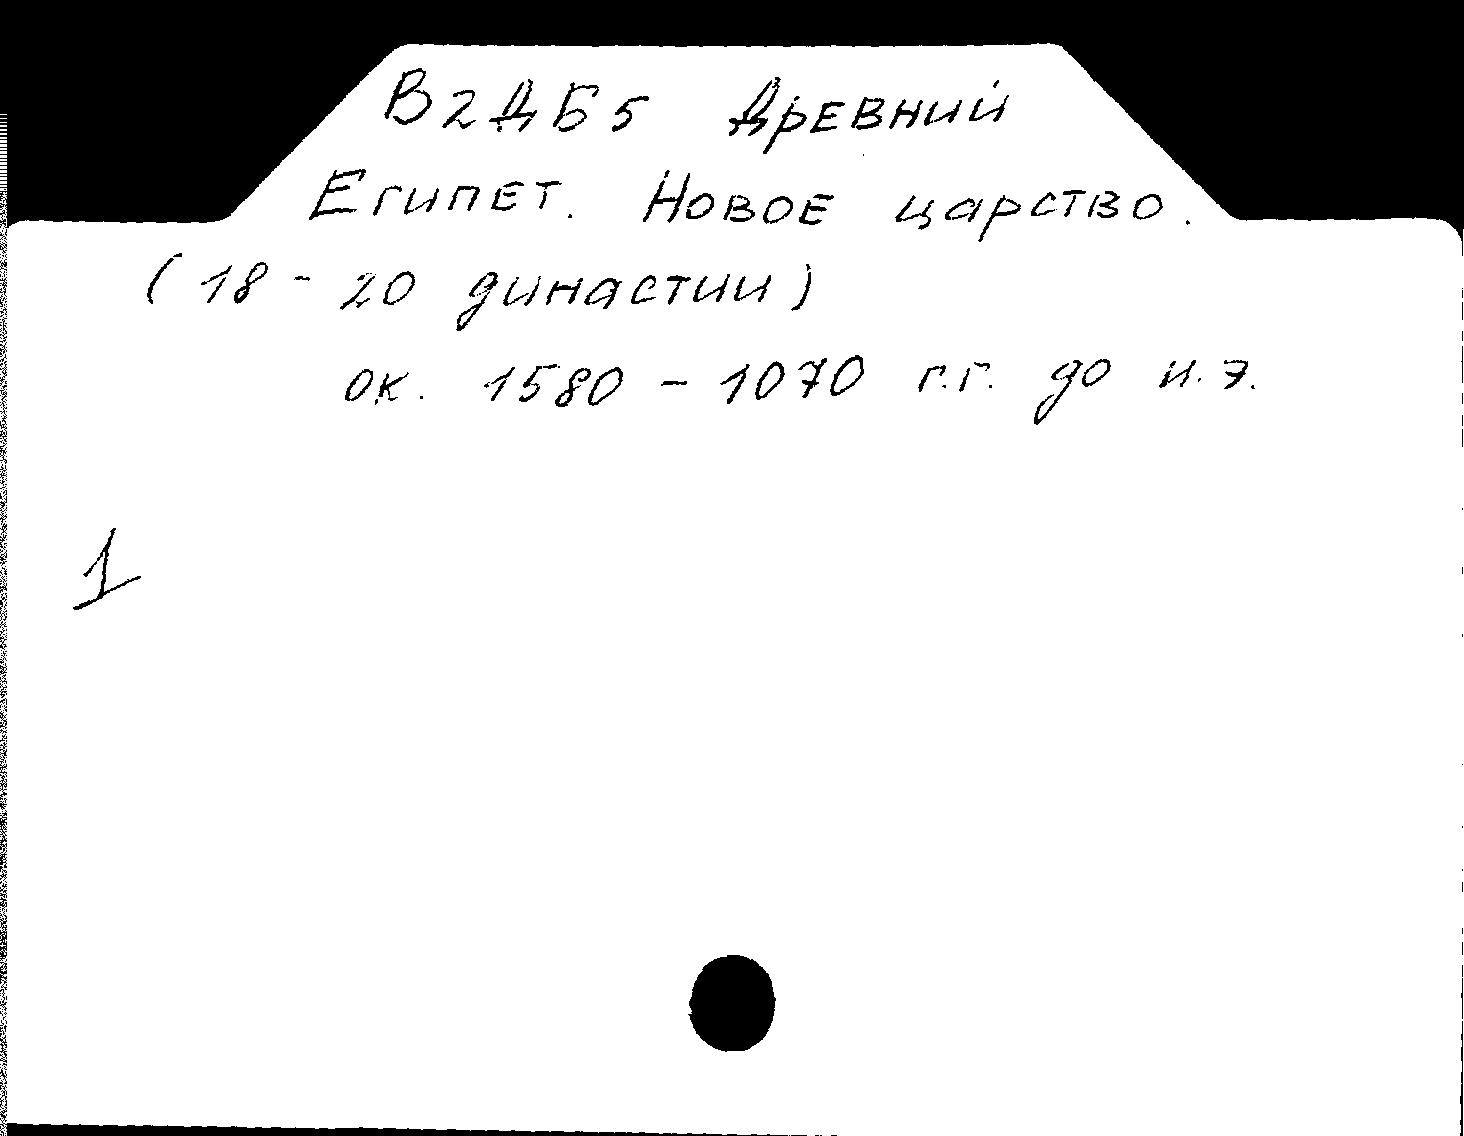 В2ДБ5 Древний
Египет. Новое царство.
(18 - 20 династии)
ок. 1580 - 1070 г.г. до н.э.
1